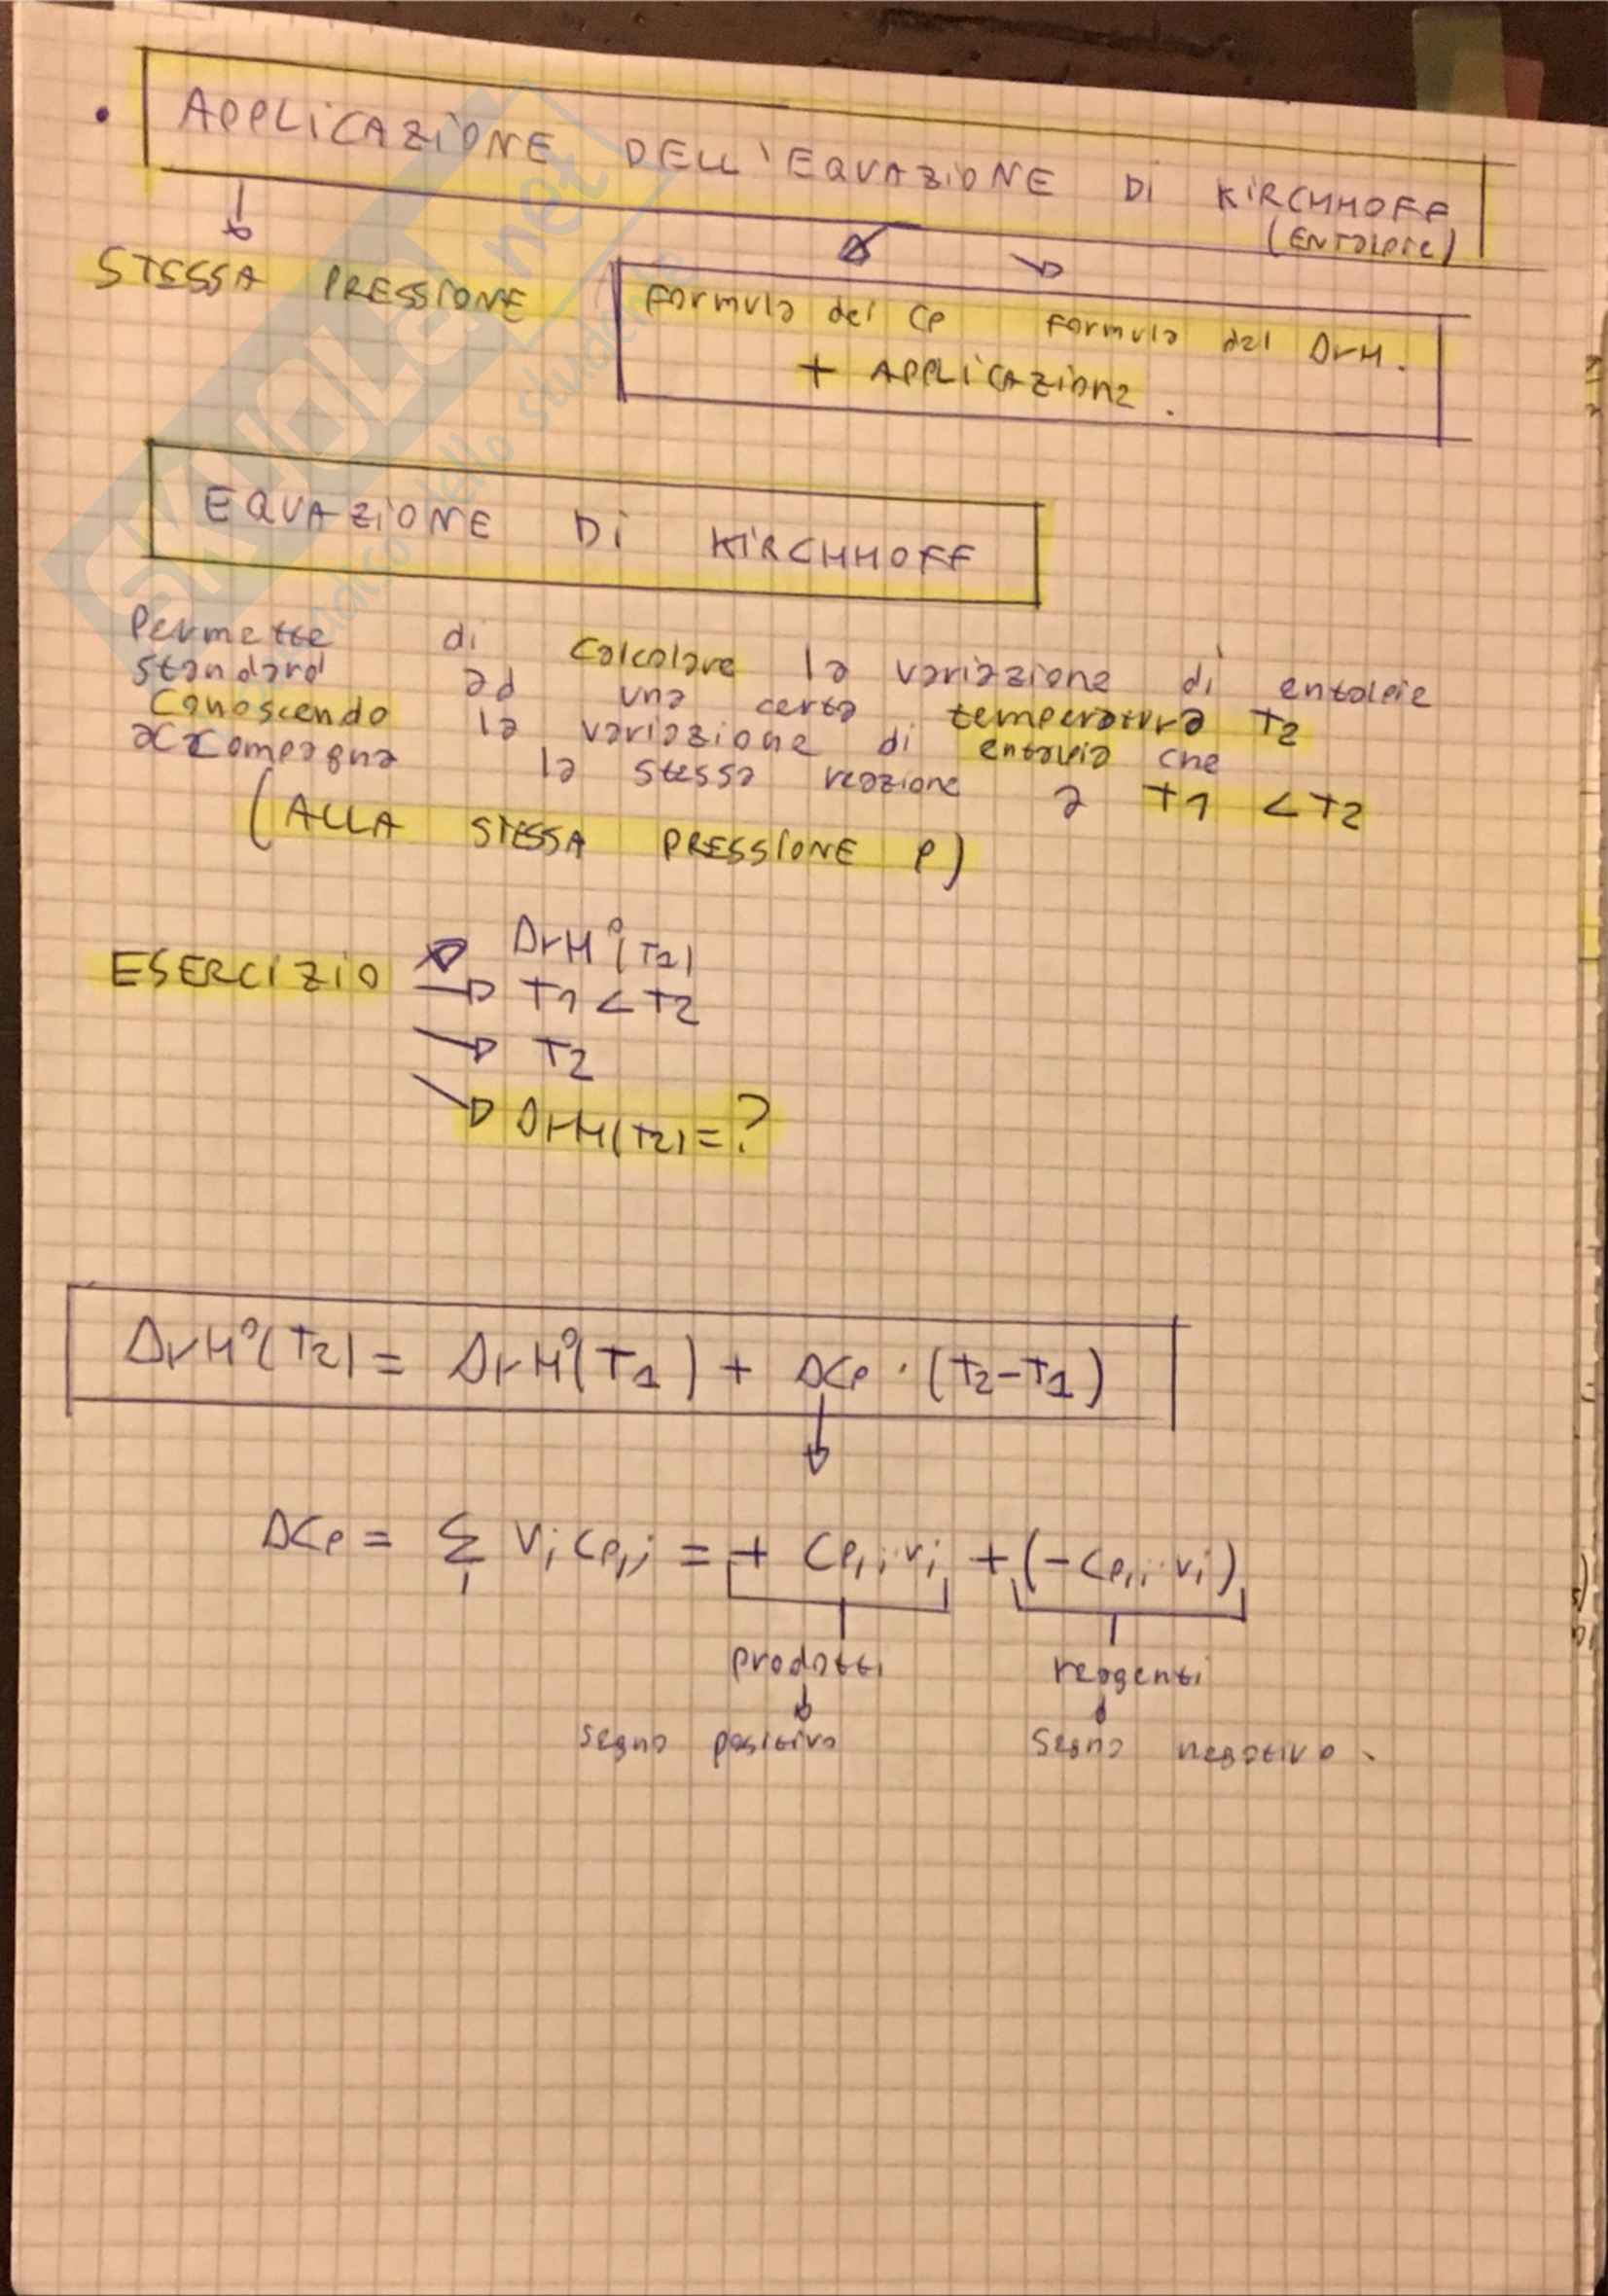 • APPLICAZIONE DELL'EQUAZIONE DI KIRCHHOFF
(ENTALPIE)
STESSA PRESSIONE
Formula del Cp Formula del ΔrH.
+ APPLICAZIONE.
EQUAZIONE DI KIRCHHOFF
Permette di calcolare la variazione di entalpie
standard ad una certa temperatura T2
Conoscendo la variazione di entalpia che
accompagna la stessa reazione a T1 < T2
(ALLA STESSA PRESSIONE P)
ESERCIZIO → ΔrH°(T1)
→ T1 < T2
→ T2
→ ΔrH(T2) = ?
ΔrH°(T2) = ΔrH°(T1) + ΔCp · (T2-T1)
ΔCp = Σi Vi Cp,i = + Cp,i·vi + (-Cp,i·vi)
prodotti reagenti
segno positivo segno negativo.
SKUOLA.net